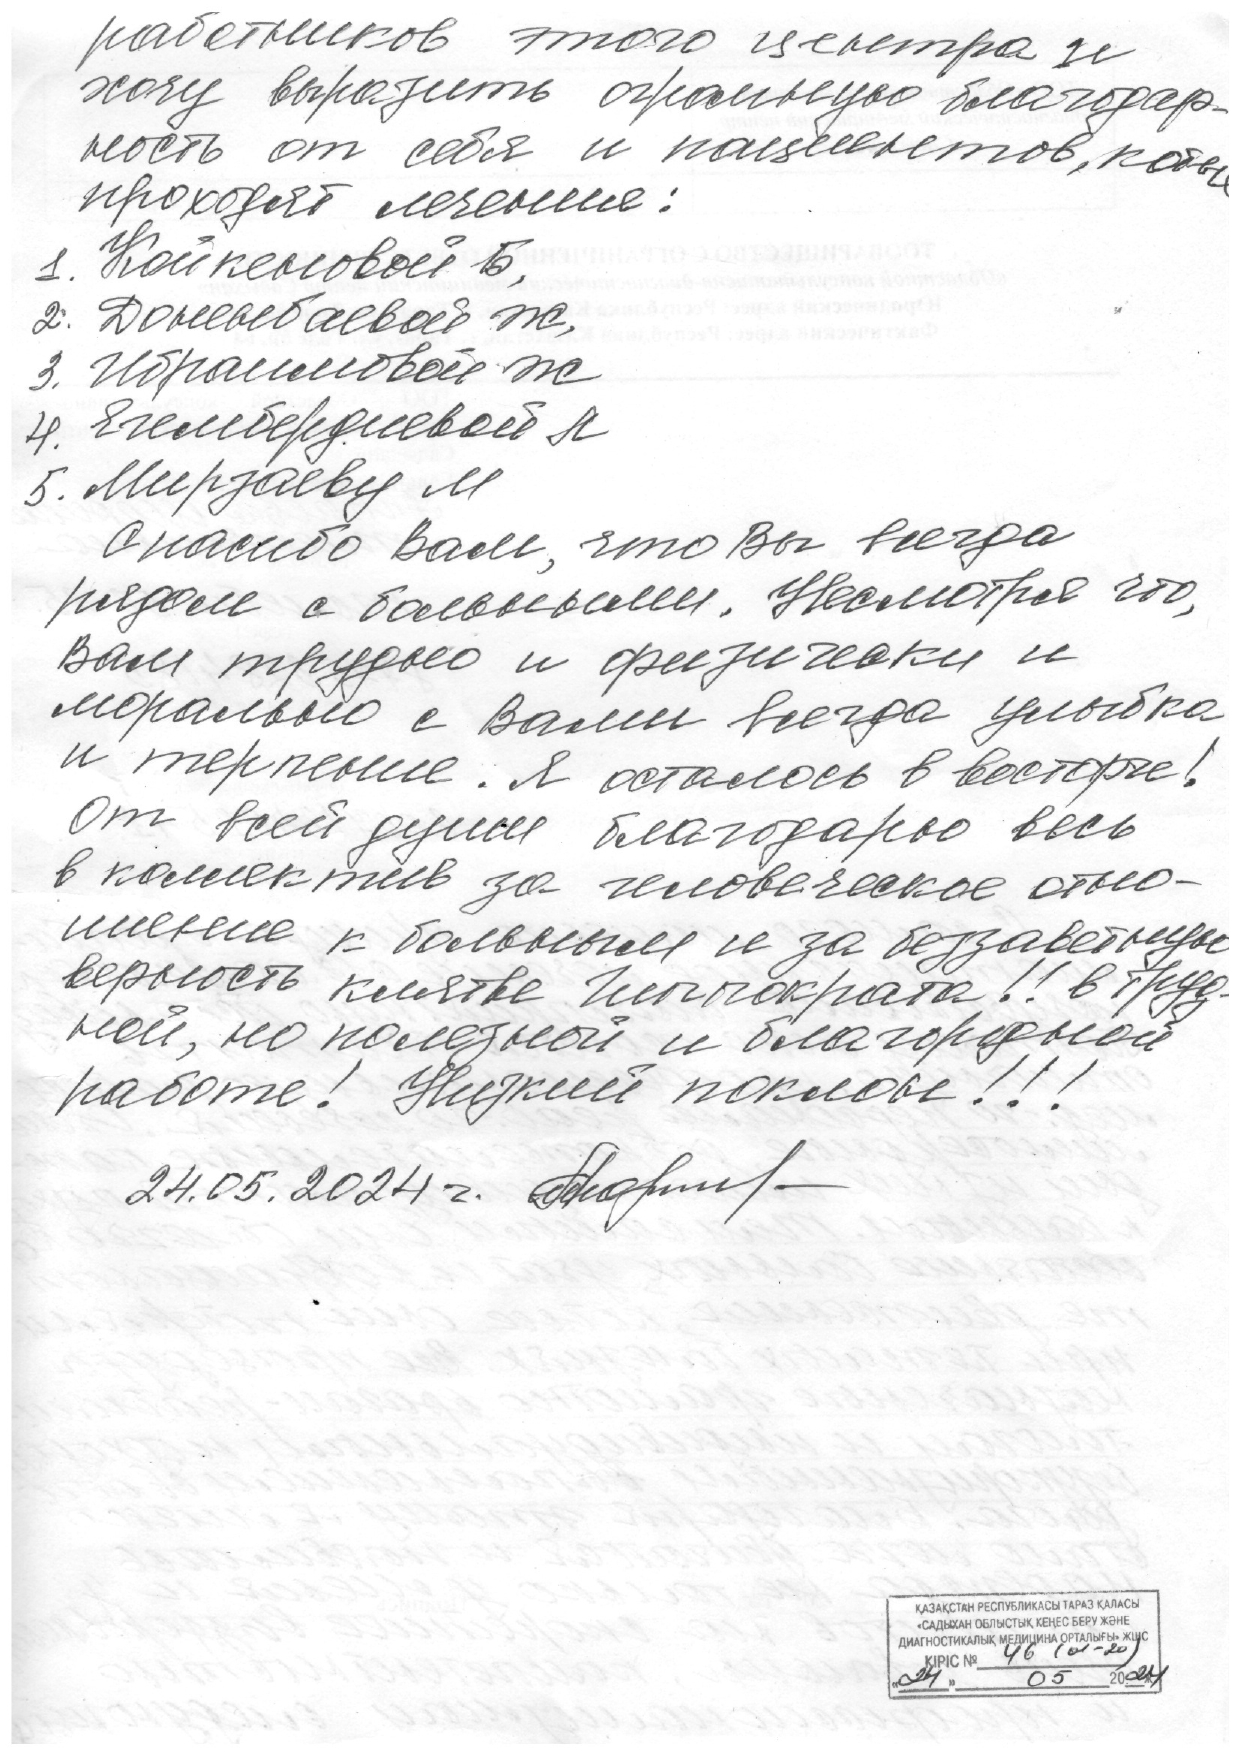 работников этого центра и
хочу выразить огромную благодар-
ность от себя и пациентов, котые
проходят лечение:
1. Койкеновой Б.
2. Доненбаевой Ж.
3. Ибраимовой Ж
4. Ягембердиевой А
5. Мирзаеву М
Спасибо Вам, что Вы всегда
рядом с больными. Несмотря что,
Вам трудно и физически и
морально с Вами всегда улыбка
и терпение. Я осталось в восторге!
От всей души благодарю весь
в коллектив за человеческое отно-
шение к больным и за беззаветную
верность клятве Гиппократа!! в труд-
ной, но полезной и благородной
работе! Низкий поклон!!!
24.05.2024 г.
ҚАЗАҚСТАН РЕСПУБЛИКАСЫ ТАРАЗ ҚАЛАСЫ
«САДЫХАН ОБЛЫСТЫҚ КЕҢЕС БЕРУ ЖӘНЕ
ДИАГНОСТИКАЛЫҚ МЕДИЦИНА ОРТАЛЫҒЫ» ЖШС
КІРІС № 46 (01-20)
«24» 05 2024